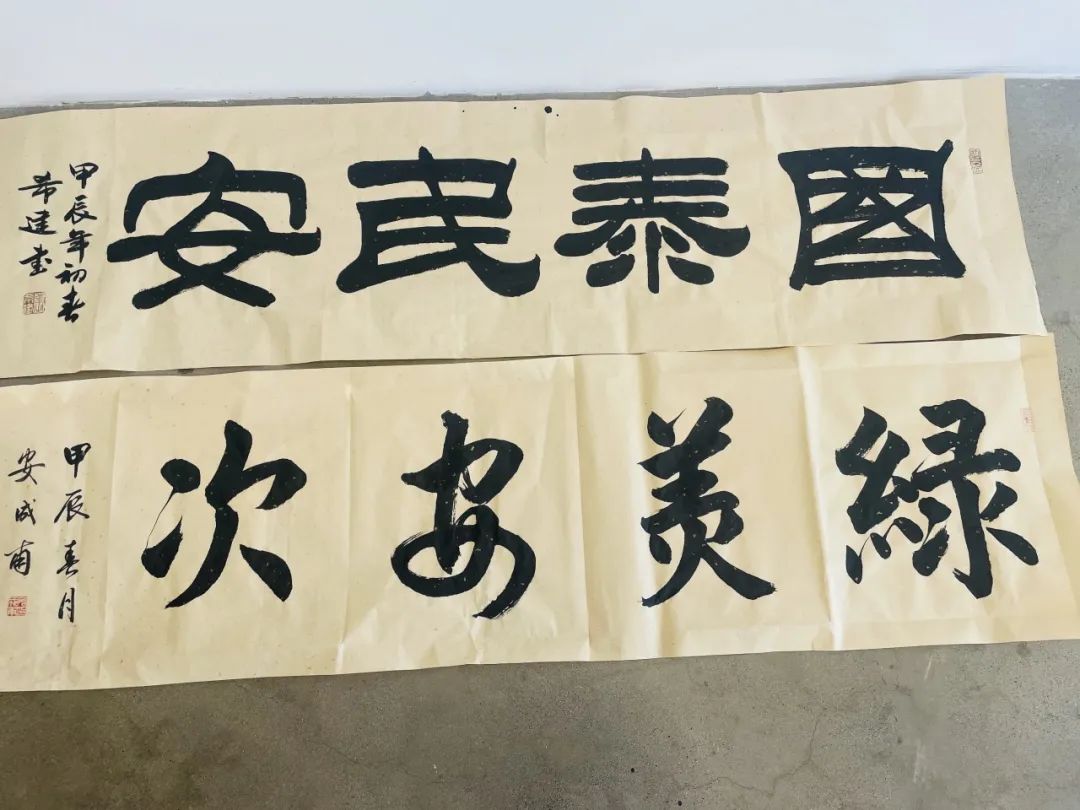 國泰民安
甲辰年初春
希建書
綠美安次
甲辰春月
安成甫